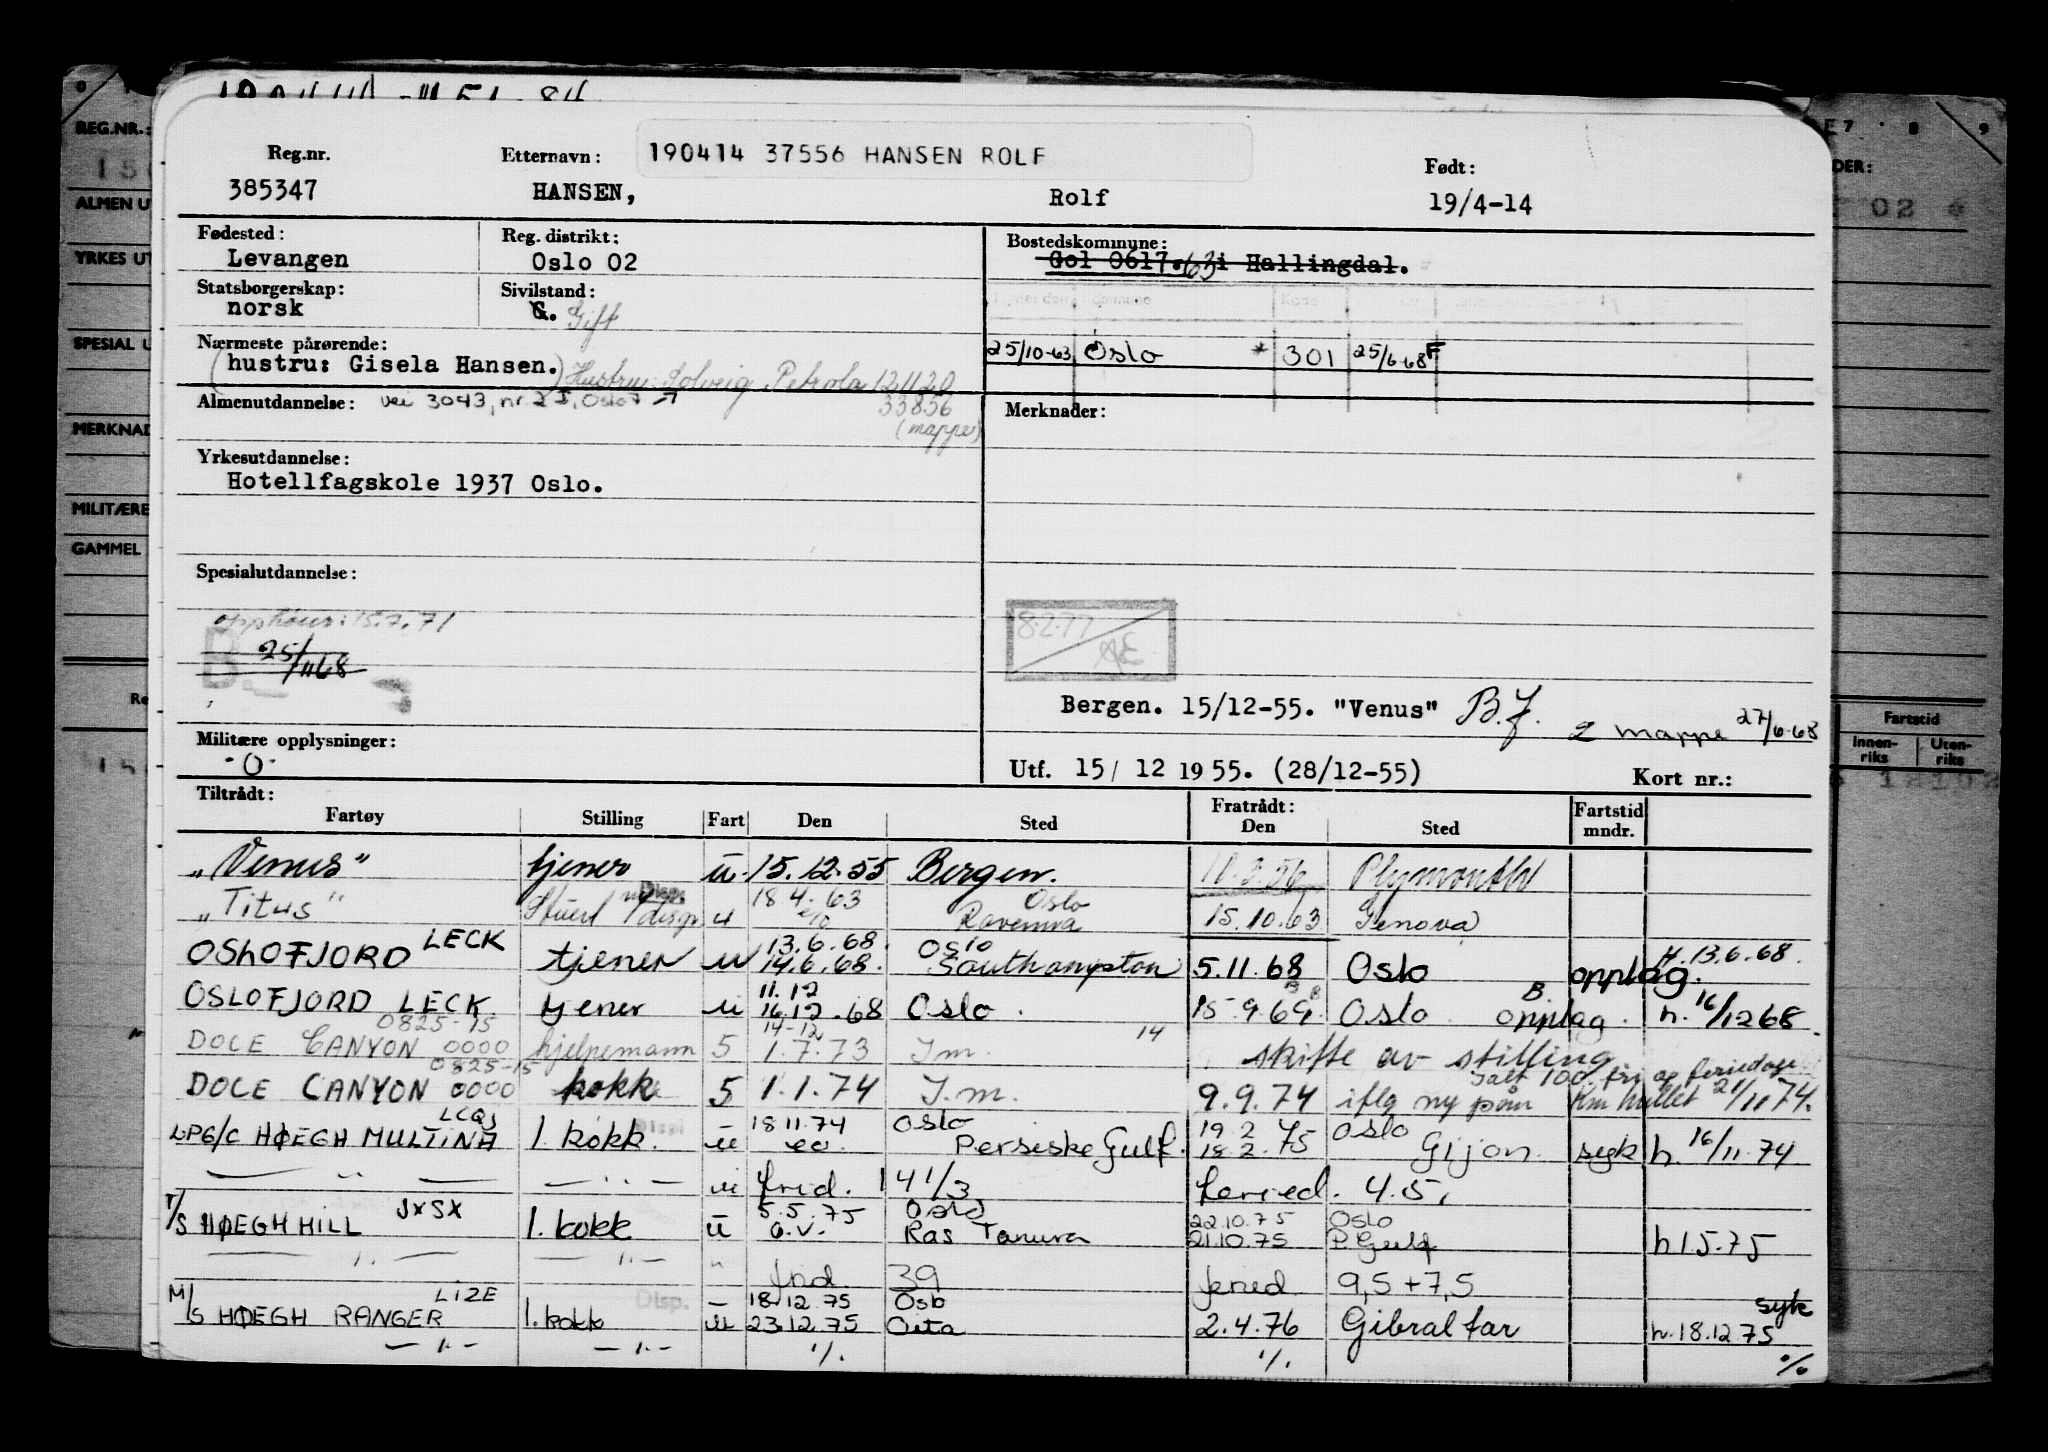 REG.NR.:
ALMEN U
YRKES UT
SPECIAL U
MERKNAD
MILITÆRE
GAMMEL
DER:
02
Fartstid
Innen-riks Uten-riks
Reg.nr. Etternavn: 190414 37556 HANSEN ROLF Født:
385347 HANSEN, Rolf 19/4-14
Fødested: Reg. distrikt: Bostedskommune:
Levangen Oslo 02 Gol 0617. 63 i Hallingdal.
Statsborgerskap: Sivilstand:
norsk G. Gift
25/10-63 Oslo * 301 25/6-68 F
Nærmeste pårørende:
(hustru: Gisela Hansen.) Hustru: Solveig Petrola 121120
33856
(mappe)
Almenutdannelse: vei 3043, nr. 2 I, Oslo 7 Merknader:
Yrkesutdannelse:
Hotellfagskole 1937 Oslo.
Spesialutdannelse:
opphører: 15.7.71
B 25/11 68
8.2.77
AE
Bergen. 15/12-55. "Venus" B.J. 2 mappe 27/6-68
Militære opplysninger:
-0-
Utf. 15/ 12 1955. (28/12-55) Kort nr.:
Tiltrådt: Fratrådt:
Fartøy Stilling Fart Den Sted Den Sted Fartstid mndr.
"Venus" tjener u. 15.12.55 Bergen. Plymouth
18.4.63 Oslo
"Titus" u Ravenna 15.10.63 Genova
LECK 13.6.68. Oslo H. 13.6.68.
OSLOFJORD tjener u 14.6.68. Southampton 5.11.68 Oslo opplag.
11.12
OSLOFJORD LECK tjener u 16.12.68 Oslo. 15-9.69. Oslo B. opplag. h. 16/12 68
0825-15 14-12 14
DOCE CANYON 0000 hjelpemann 5 1.7.73 I.m. skifte av stilling
0825-15 Ialt 100 fri og feriedage
DOCE CANYON 0000 kokk 5 1.1.74 I.m. 9.9.74 iflg ny påm Km hullet 21/11 74.
LCQJ 18.11.74 Oslo 19.2 75 Oslo
LPG/C HØEGH MULTINA 1. kokk. u eo. Persiske Gulf. 18.2.75 Gijon. syk h. 16/11-74
— " — — " — u frid. 14 1/3 feried. 4.5,
JXSX 5.5.75 Oslo 22.10.75 Oslo
T/S HØEGH HILL 1. kokk u o.v. Ras Tanura 21.10.75 P. Gulf h 1.5.75
— " — — " — " frid. 39 feried 9,5 + 7,5
LIZE Disp. — 18.12.75 Oslo syk
M/S HØEGH RANGER 1. kokk u 23.12.75 Oita 2.4.76 Gibraltar h. 18.12.75
— " — — " — ·/. ·/. %